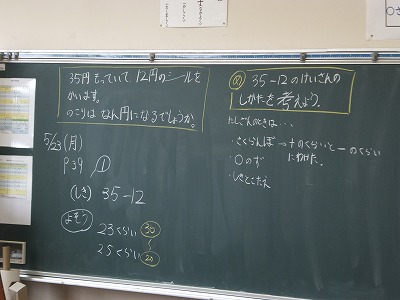 35円もっていて、12円のシールを
かいます。
のこりは なん円になるでしょうか。
5/23(月)
P39 ①
しき 35-12
よそう 23くらい 30
25くらい 20
め 35-12のけいさんの
しかたを考えよう。
たしざんのときは…
・さくらんぼ→十のくらいと一のくらい
にわけた。
・〇のず
・しきとこたえ